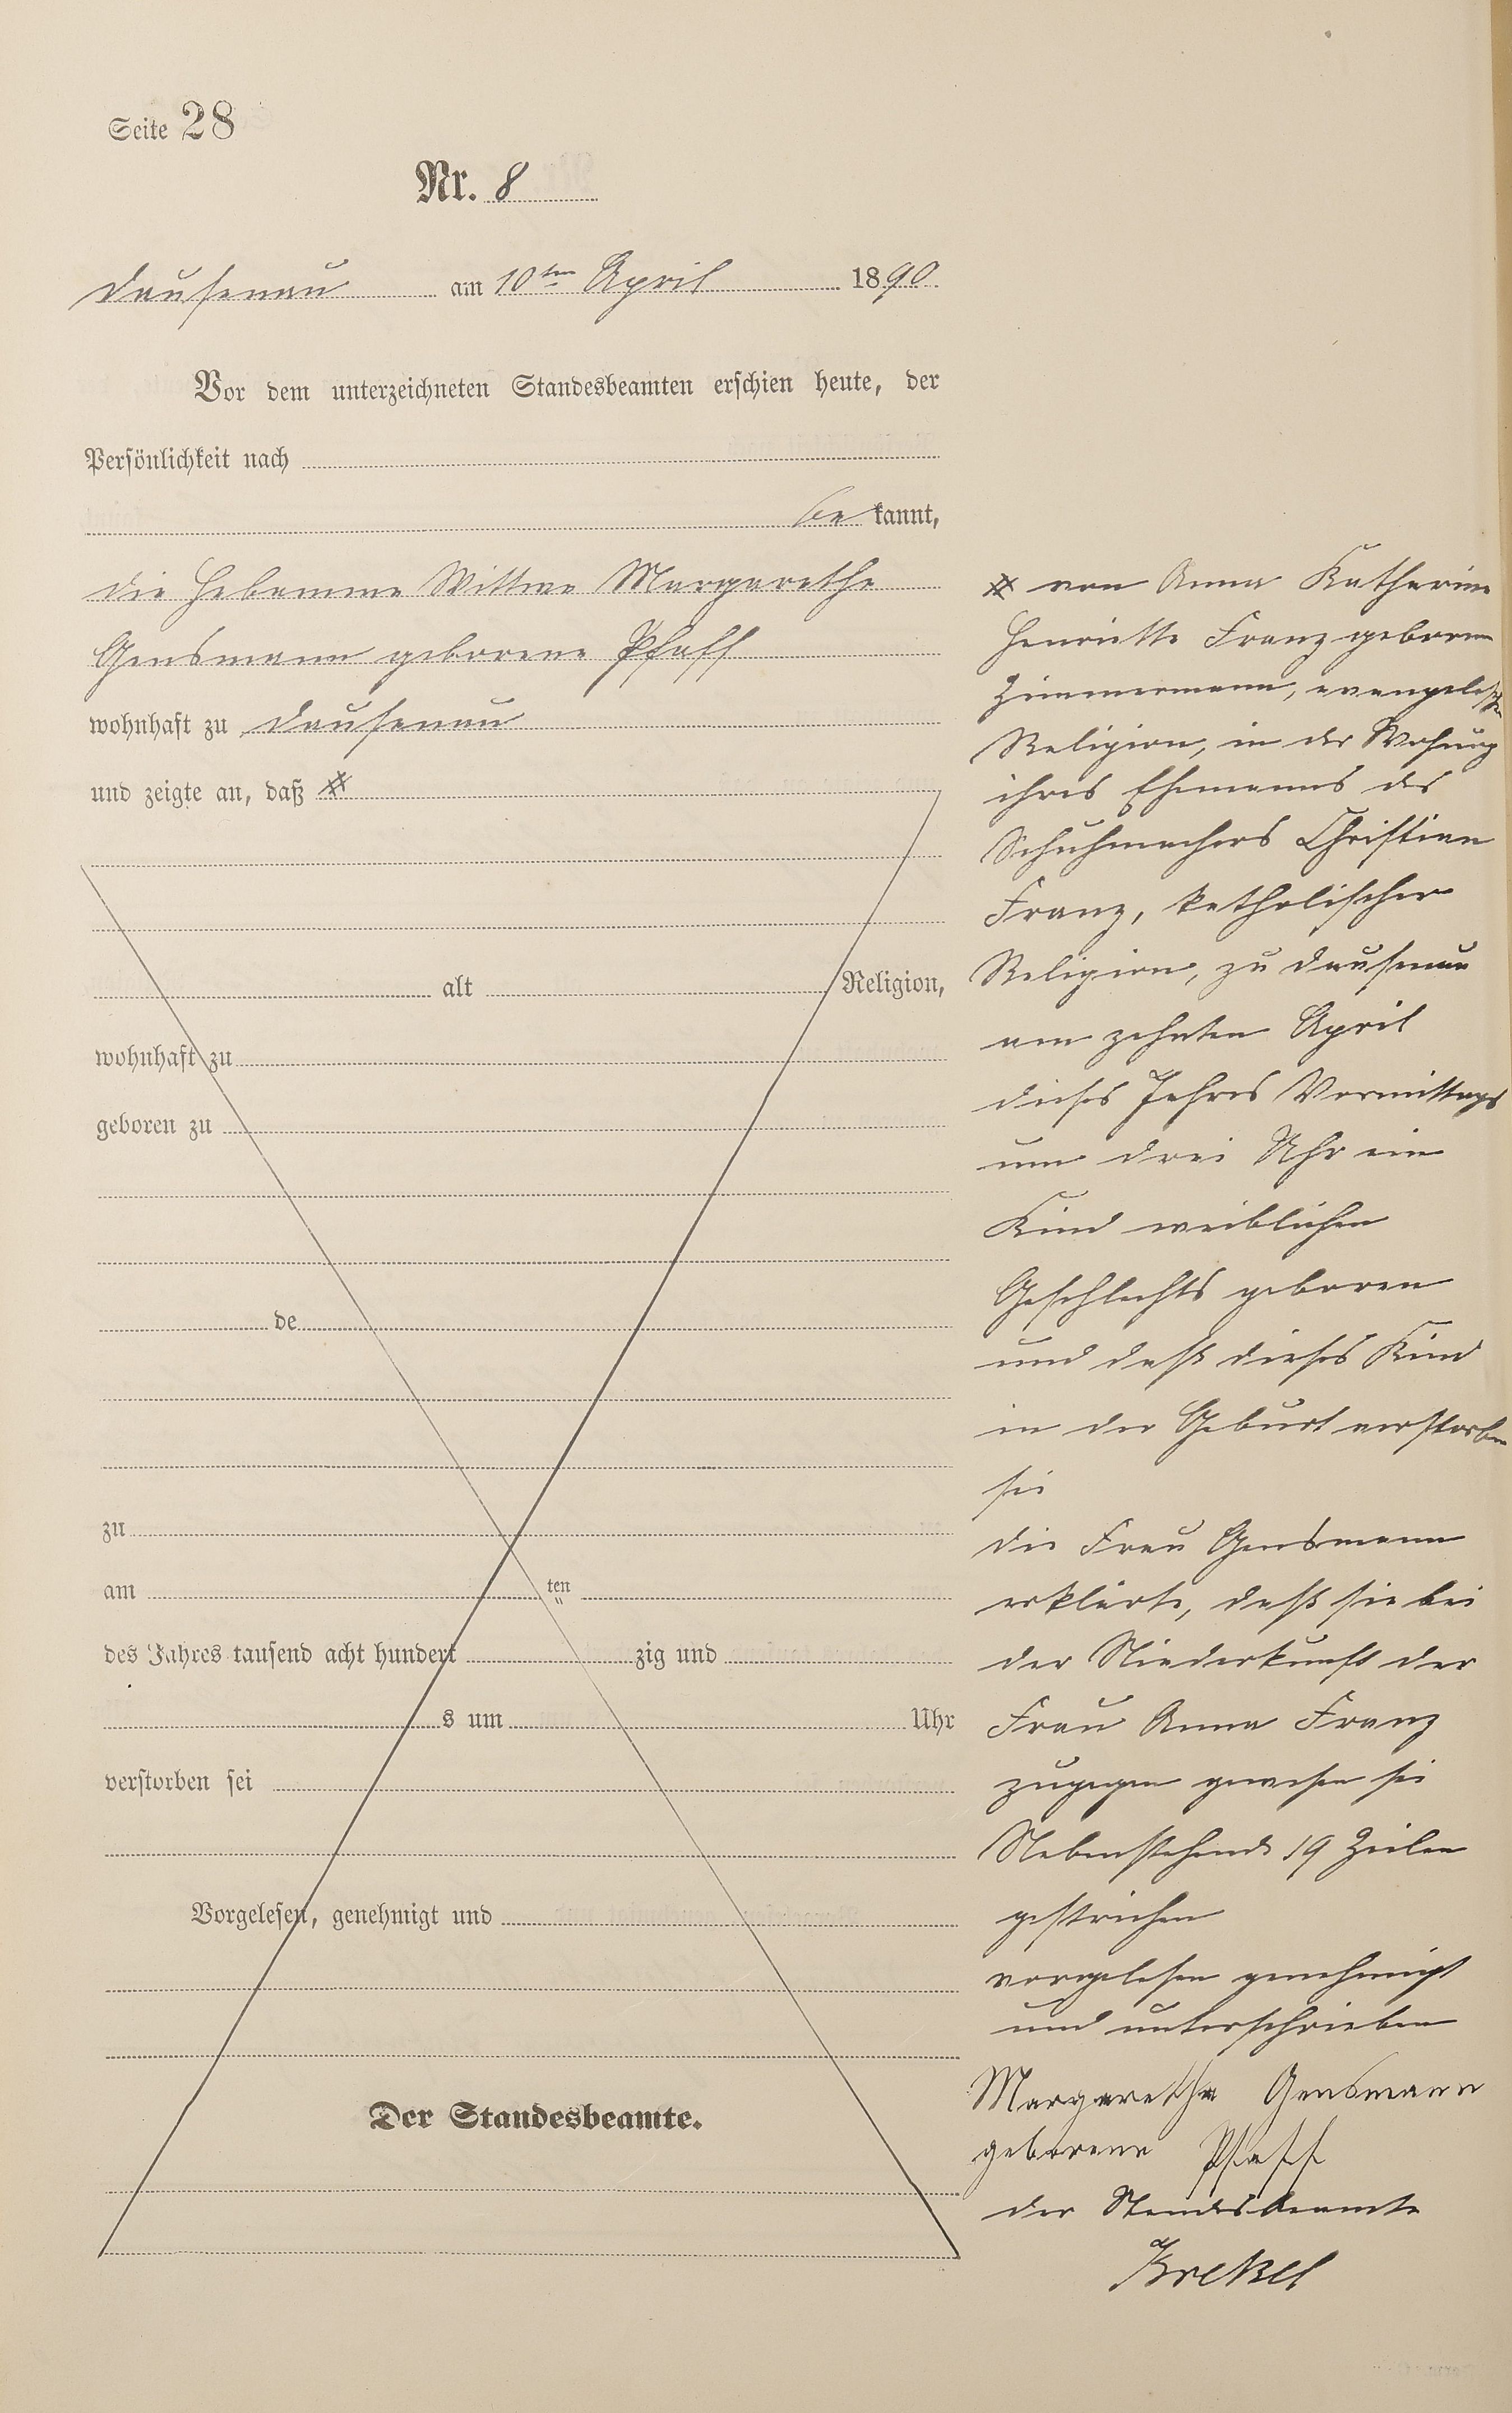 Seite 28
Nr. 8
Dausenau am 10ten April 1890
Vor dem unterzeichneten Standesbeamten erschien heute, der
Persönlichkeit nach
be kannt,
die Hebamme Wittwe Margarethe
Gensmann geborene Pfaff
wohnhaft zu Dausenau
und zeigte an, daß #
alt Religion,
wohnhaft zu
geboren zu
de
zu
am ten
des Jahres tausend acht hundert zig und
s um Uhr
verstorben sei
Vorgelesen, genehmigt und
Der Standesbeamte.
# von Anna Katharine
Henriette Franz geborene
Zimmermann, evangelischer
Religion, in der Wohnung
ihres Ehemanns des
Schuhmachers Christian
Franz, katholischer
Religion, zu Dausenau
am zehnten April
dieses Jahres Vormittags
um drei Uhr ein
Kind weiblichen
Geschlechts geboren
und daß dieses Kind
in der Geburt verstorben
sei
die Frau Gensmann
erklärte, daß sie bei
der Niederkunft der
Frau Anna Franz
zugegen gewesen sei
Nebenstehende 19 Zeilen
gestrichen
vorgelesen genehmigt
und unterschrieben
Margaretha Gensmann
geborene Pfaff
der Standesbeamte
Krekel